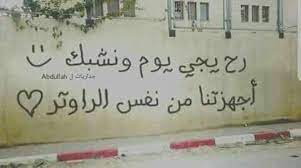 رح يجي يوم ونشبك :)
جداريات ل Abdullah
أجهزتنا من نفس الراوتر ♡